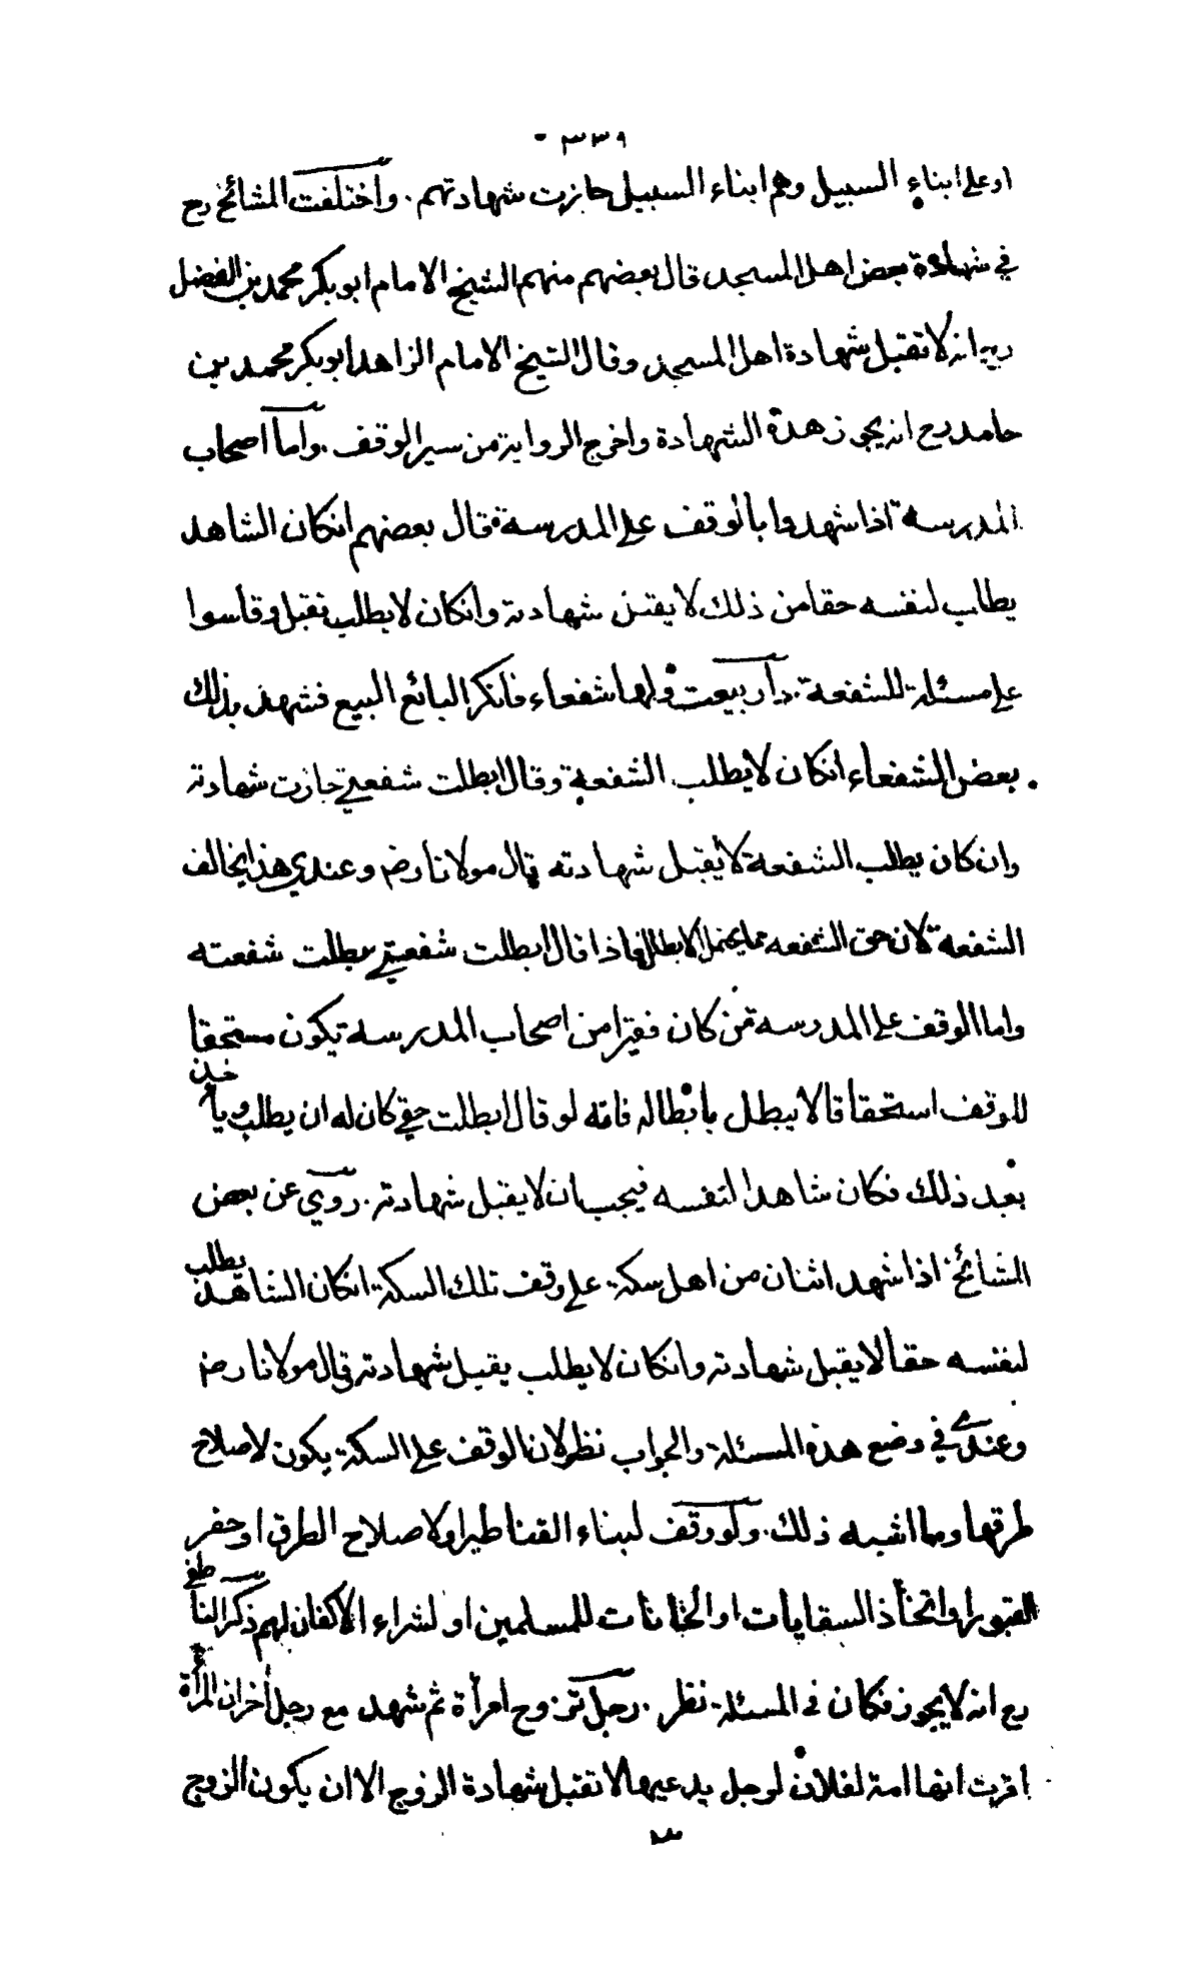 ٣٣٩
او على ابناء السبيل وهم ابناء السبيل جازت شهادتهم . واختلفت المشائخ رح
في شهادة بعض اهل المسجد قال بعضهم منهم الشيخ الامام ابو بكر محمد بن الفضل
رح انه لا تقبل شهادة اهل المسجد وقال الشيخ الامام الزاهد ابو بكر محمد بن
حامد رح انه يجوز هذه الشهادة واخرج الرواية من سير الوقف . واما اصحاب
المدرسة اذا شهدوا بالوقف على المدرسة فقال بعضهم انكان الشاهد
يطالب لنفسه حقا من ذلك لا يقبل شهادته وانكان لا يطلب تقبل وقاسوا
على مسئلة للشفعة . دار بيعت ولها شفعاء فانكر البائع البيع فشهد بذلك
بعض الشفعاء انكان لا يطلب الشفعة وقال ابطلت شفعتي جازت شهادته
وان كان يطلب الشفعة لا يقبل شهادته قال مولانا رض وعندي هذا يخالف
الشفعة لان حق الشفعه مما يحتمل الابطال فاذا قال ابطلت شفعتي بطلت شفعته
واما الوقف على المدرسة فمن كان فقيرا من اصحاب المدرسة يكون مستحقا
للوقف استحقاقا لا يبطل بابطاله فانه لو قال ابطلت حقي كان له ان يطلب ويأخذ
بعد ذلك فكان شاهدا لنفسه فيجب ان لا يقبل شهادته . روي عن بعض
المشائخ اذا شهد اثنان من اهل سكة على وقف تلك السكة انكان الشاهد يطلب
لنفسه حقا لا يقبل شهادته وانكان لا يطلب يقبل شهادته قال مولانا رض
وعندي في وضع هذه المسئلة والجواب نظر لان الوقف على السكة يكون لاصلاح
طرقها وما اشبه ذلك . ولو وقف لبناء القناطير او لاصلاح الطرق او حفر
القبور او اتخاذ السقايات او الخانات للمسلمين او لشراء الاكفان لهم ذكر الناطفي
رح انه لا يجوز فكان في المسئلة نظر . رجل تزوج امرأة ثم شهد مع رجل آخر ان المرأة
اقرت انها امة لفلان لرجل يدعيها لا تقبل شهادة الزوج الا ان يكون الزوج